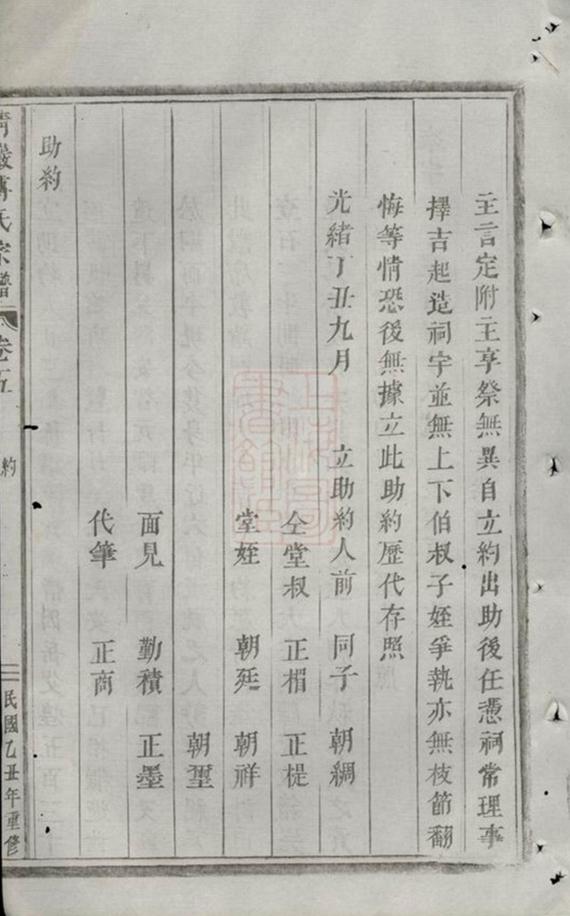 主言定附主享祭無異自立約出助後任憑祠常理事
擇吉起造祠宇並無上下伯叔子姪爭執亦無枝節翻
悔等情恐後無據立此助約歷代存照
光緒丁丑九月 立助約人前 同子 朝綢
仝堂叔 正楣 正楗
堂姪 朝廷 朝祥
朝璽
面見 勤積 正墨
代筆 正商
助約
氏宗譜 卷五 約 民國乙丑年重修